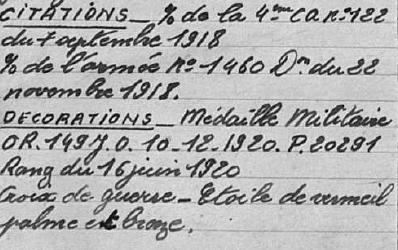 CITATIONS _ % de la 4ème CA. n° 122
du 7 septembre 1918
% de l'armée N° 1460 Dn. du 22
novembre 1918.
DECORATIONS _ Médaille Militaire
OR. 1497. O. 10-12-1920. P. 20291
Rang du 16 juin 1920
Croix de guerre _ Etoile de vermeil
palme et bronze.